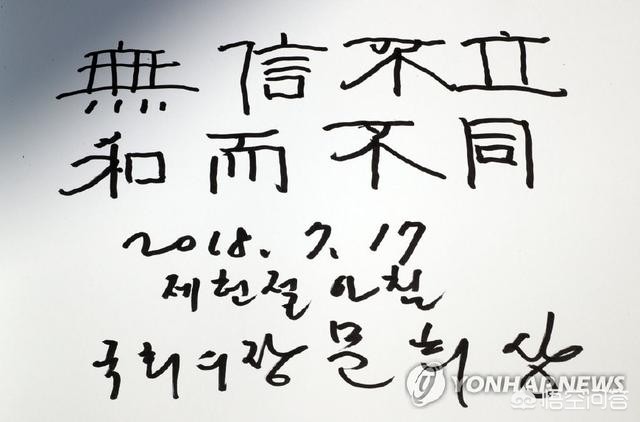 無信不立
和而不同
2018. 7. 17
제헌절 아침
국회의장 문희상
YONHAPNEWS
悟空问答